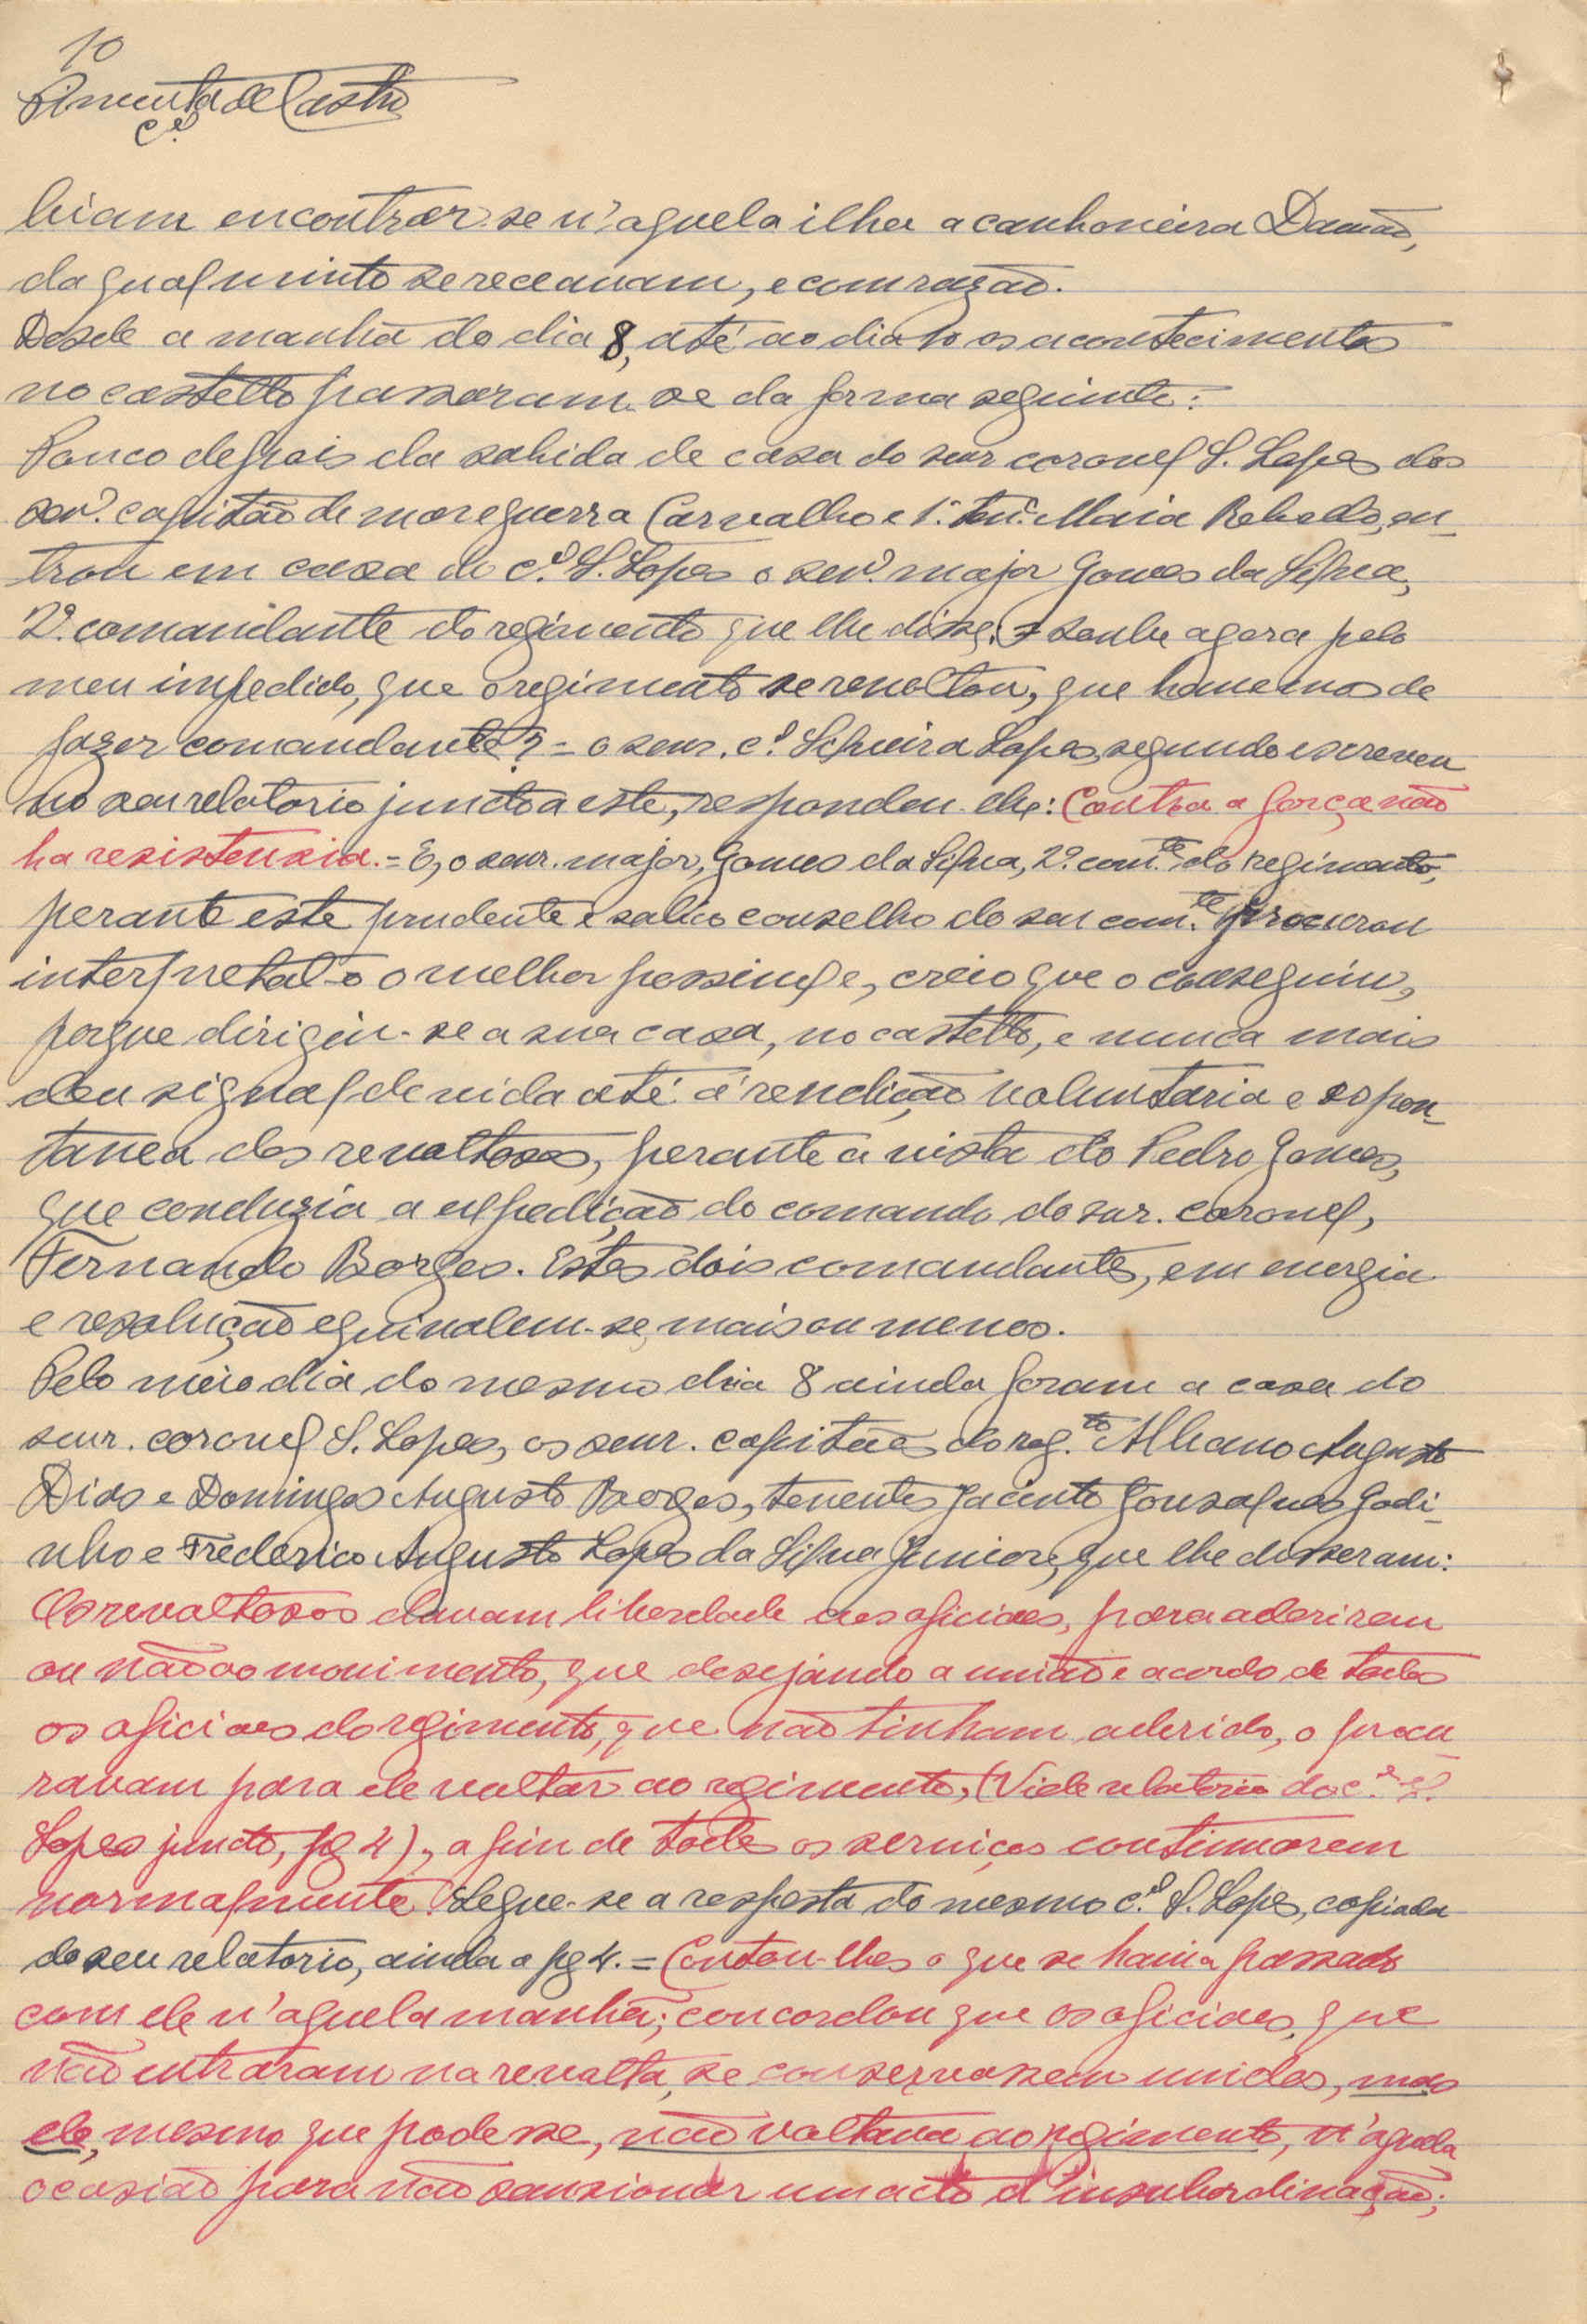 10
Pimenta de Castro
c.el
biam encontrar-se n'aquela ilha a canhoneira Damão,
da qual muito se receavam, e com razão.
Desde a manhã do dia 8, até ao dia 10 os acontecimentos
no castello passaram-se da forma seguinte:
Pouco depois da sahida de casa do snr coronel S. Lopes dos
snr.s capitão de mar e guerra Carvalho e 1.º ten.e Maia Rebello, en-
trou em casa do c.el S. Lopes o snr. major Gomes da Silva,
2.º comandante do regimento que lhe disse: = soube agora pelo
meu impedido, que o regimento se revoltou, que havemos de
fazer comandante? = o snr. c.el Silveira Lopes, segundo escreveu
no seu relatorio juncto a este, respondeu-lhe: Contra a força não
ha resistencia. = E, o snr. major, Gomes da Silva, 2.º com.te do regimento,
perante este prudente e sabio conselho do seu com.te procurou
interpretal-o o melhor possivel e, creio que o conseguiu,
porque dirigiu-se a sua casa, no castello, e nunca mais
deu signal de vida até á rendição voluntaria e espon-
tanea dos revoltosos, perante a vista do Pedro Gomes,
que conduzia a expedição do comando do snr. coronel,
Fernando Borges. Estes dois comandantes, em energia
e resolução equivalem-se, mais ou menos.
Pelo meio dia do mesmo dia 8 ainda foram a casa do
snr. coronel S. Lopes, os snr. capitães do reg.to Albano Augusto
Dias e Domingos Augusto Borges, tenentes Jacinto Gonsalves Godi-
nho e Frederico Augusto Lopes da Silva Junior, que lhe disseram:
Os revoltosos davam liberdade aos oficiaes, para aderirem
ou não ao movimento, que desejando a união e acordo de todos
os oficiaes do regimento, que não tinham aderido, o procu-
ravam para ele voltar ao regimento, (Vide relatorio do c.el S.
Lopes juncto, pg 4), a fim de todos os serviços continuarem
normalmente. Segue-se a resposta do mesmo c.el S. Lopes, copiada
do seu relatorio, ainda a pg 4. = Contou-lhes o que se havia passado
com ele n'aquela manhã; concordou que os oficiaes, que
não entraram na revolta, se conservassem unidos, mas
ele, mesmo que podesse, não voltava ao regimento, n'aquela
ocasião para não sansionar um acto d'insubordinação;